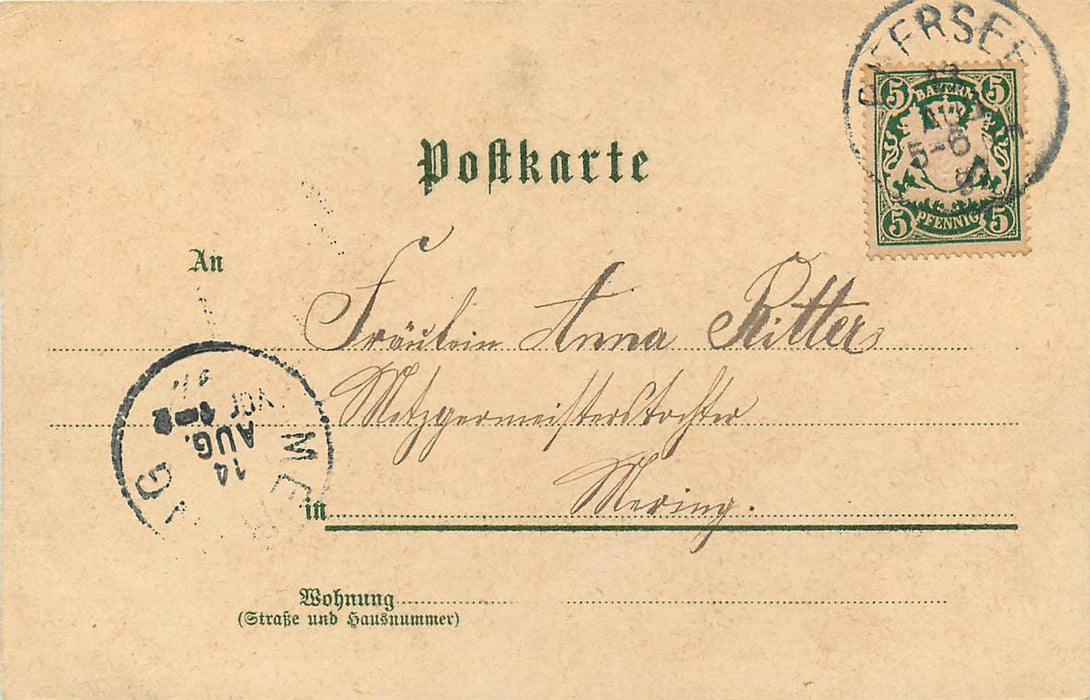 Postkarte
BAYERN
5 5
5 5
PFENNIG
5-6
An
Fräulein Anna Ritter
Metzgermeisterstochter
in Mering.
14
AUG.
Wohnung
(Straße und Hausnummer)